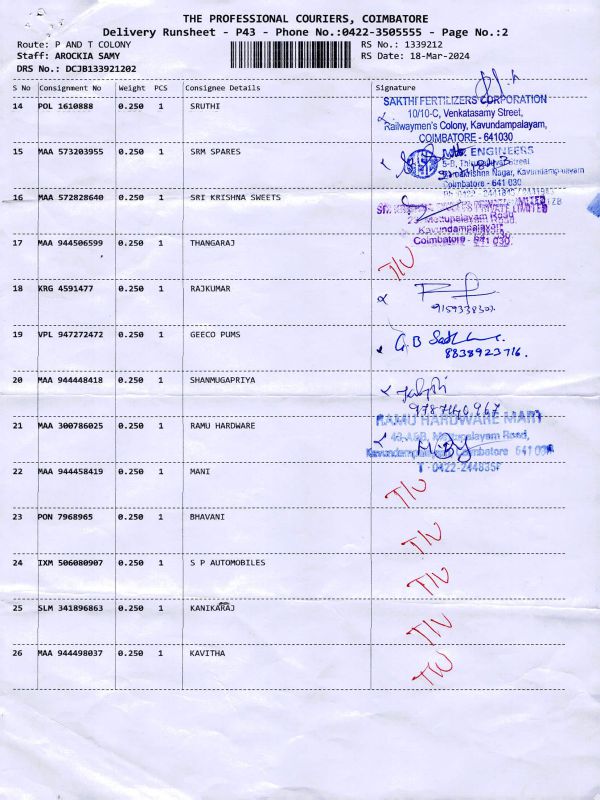 THE PROFESSIONAL COURIERS, COIMBATORE
Delivery Runsheet - P43 - Phone No.:0422-3505555 - Page No.:2
Route: P AND T COLONY RS No.: 1339212
Staff: AROCKIA SAMY RS Date: 18-Mar-2024
DRS No.: DCJB133921202
S No Consignment No Weight PCS Consignee Details Signature
14 POL 1610888 0.250 1 SRUTHI
SAKTHI FERTILIZERS CORPORATION
10/10-C, Venkatasamy Street,
Railwaymen's Colony, Kavundampalayam,
COIMBATORE - 641030
15 MAA 573203955 0.250 1 SRM SPARES
ENGINEERS
Nagar, Kavundampalayam
Coimbatore - 641 030
16 MAA 572828640 0.250 1 SRI KRISHNA SWEETS
PRIVATE LIMITED
Mettupalayam Road
Kavundampalayam
Coimbatore - 641 030
17 MAA 944506599 0.250 1 THANGARAJ
18 KRG 4591477 0.250 1 RAJKUMAR
19 VPL 947272472 0.250 1 GEECO PUMS
8838923716.
20 MAA 944448418 0.250 1 SHANMUGAPRIYA
21 MAA 300786025 0.250 1 RAMU HARDWARE
RAMU HARDWARE MART
Mettupalayam Road,
Coimbatore 641 030
22 MAA 944458419 0.250 1 MANI
23 PON 7968965 0.250 1 BHAVANI
24 IXM 506080907 0.250 1 S P AUTOMOBILES
25 SLM 341896863 0.250 1 KANIKARAJ
26 MAA 944498037 0.250 1 KAVITHA